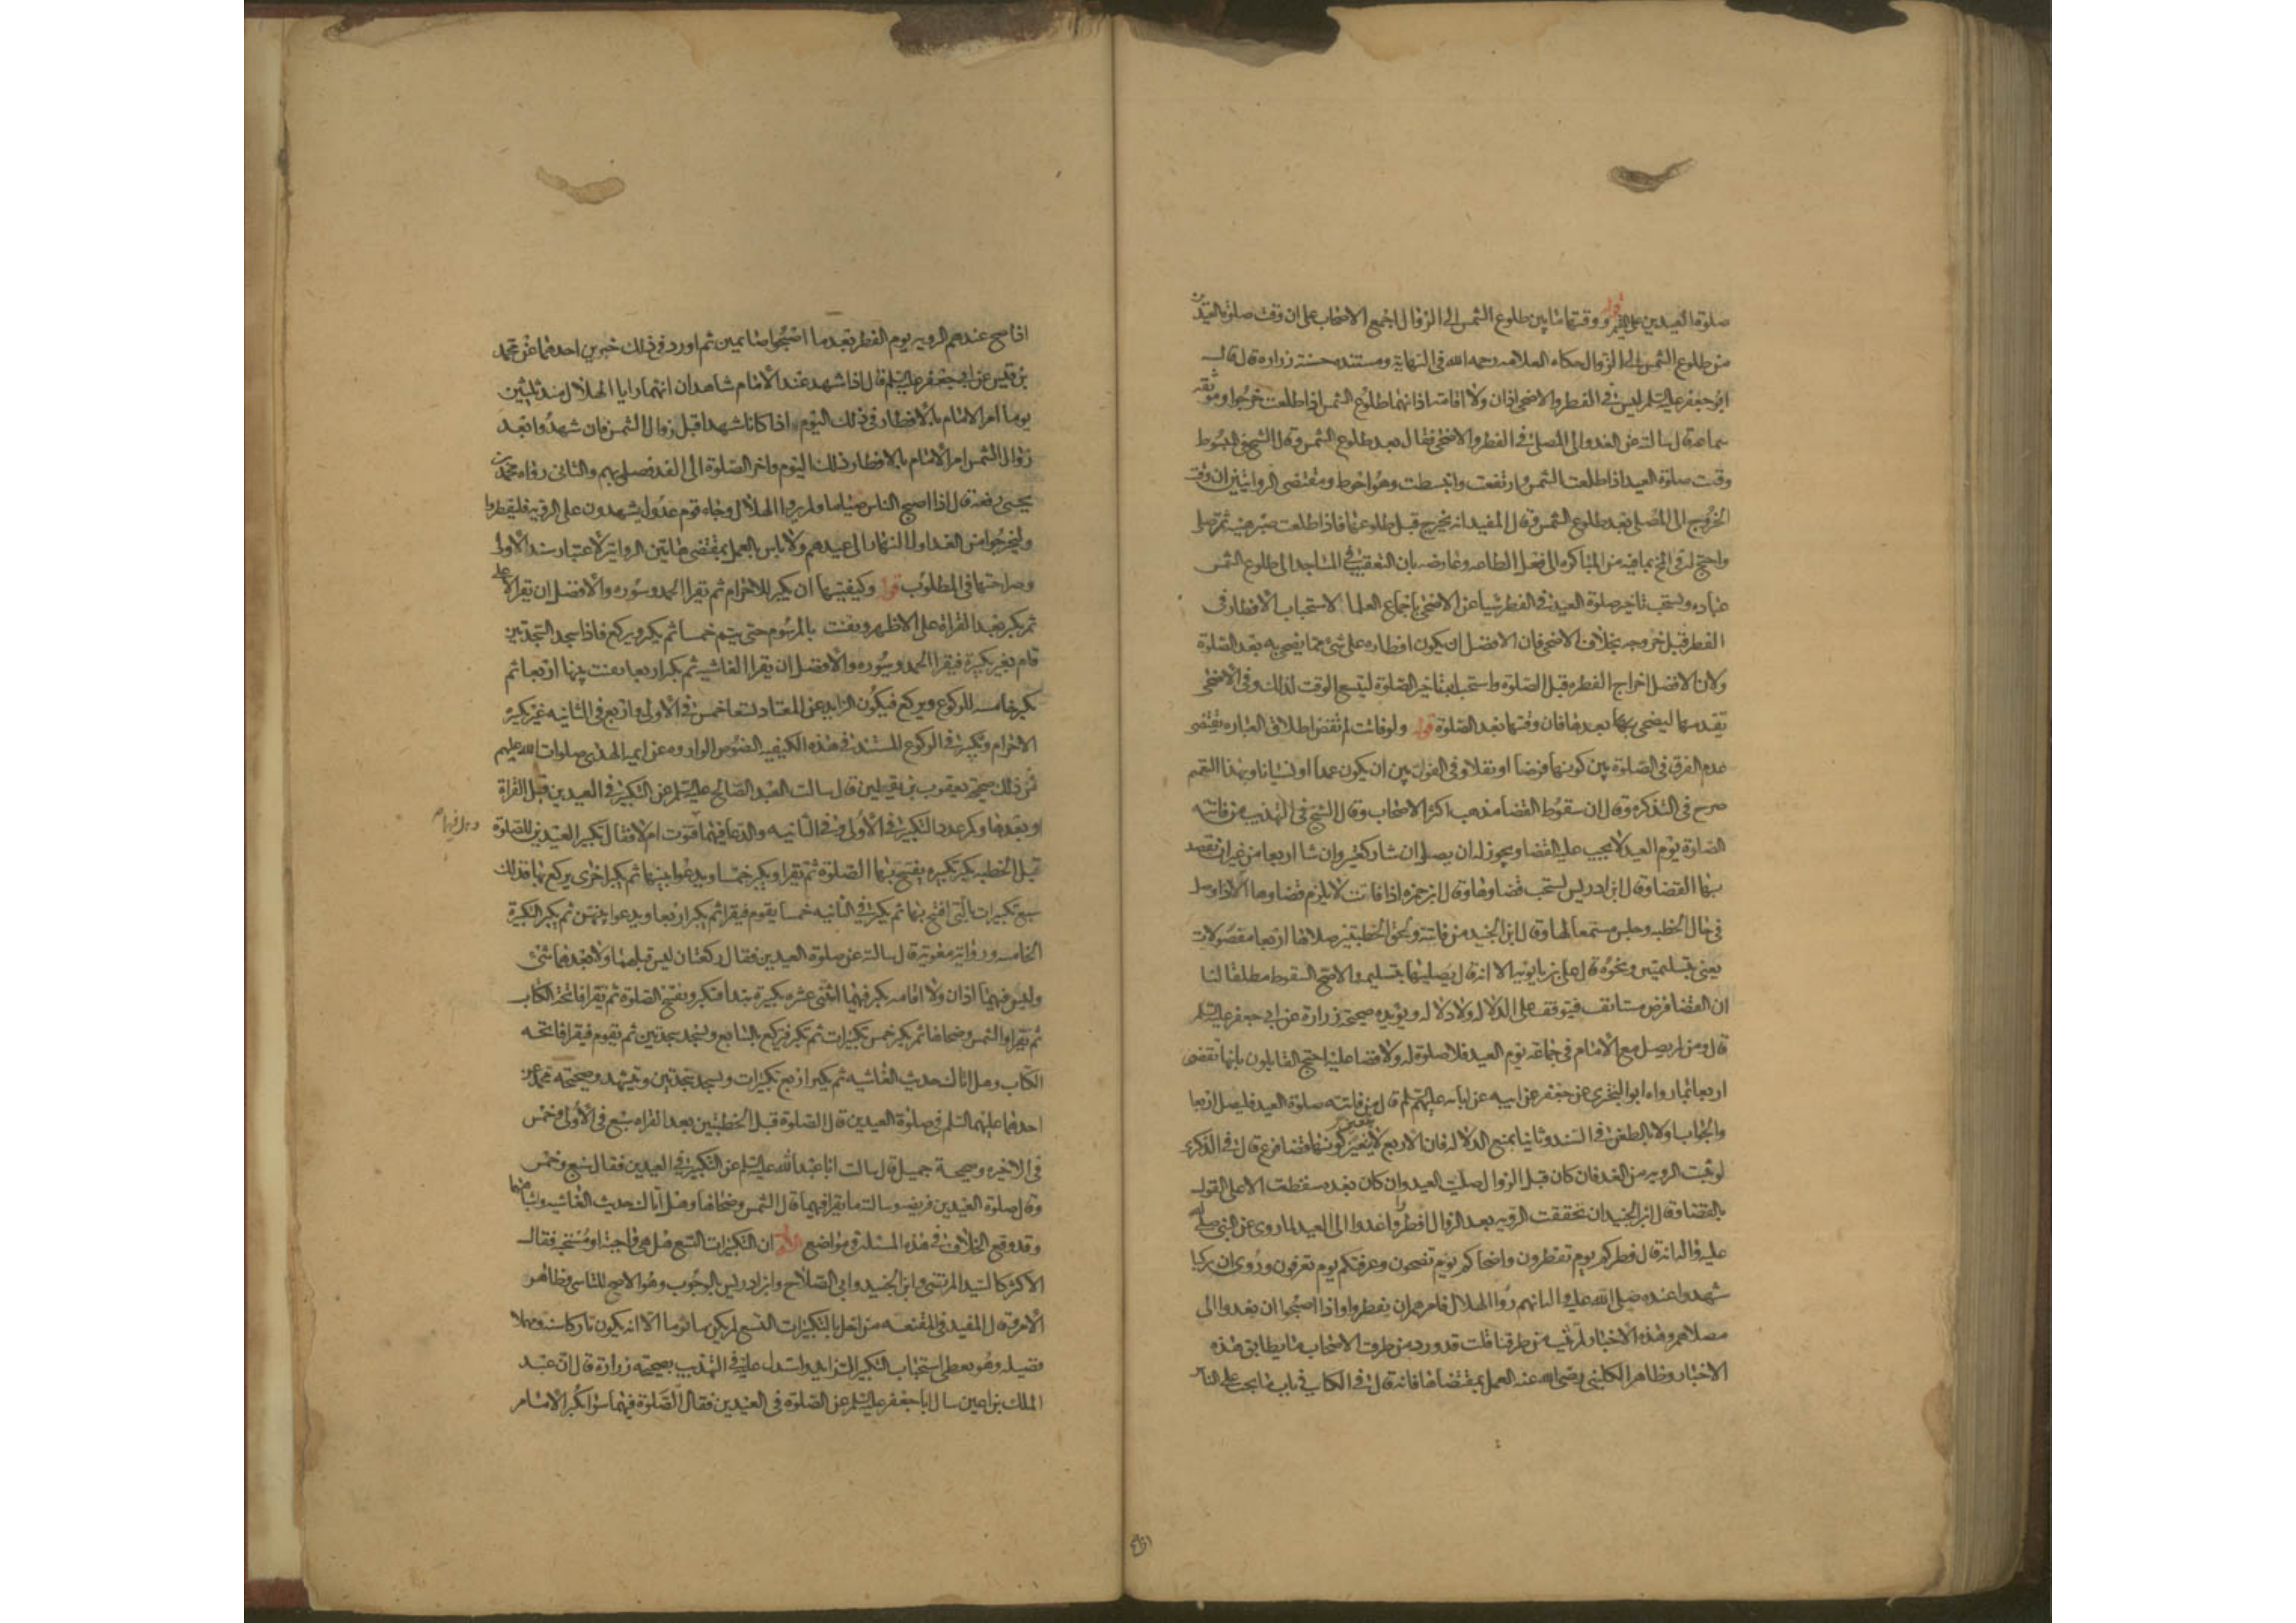 صلوة العيدين على الفقير قوله ووقتها ما بين طلوع الشمس الى الزوال اجمع الاصحاب على ان وقت صلوة العيدين
من طلوع الشمس الى الزوال حكاه العلامه رحمه الله فى النهاية ومستنده حسنة زراره قال قال
ابو جعفر عليه السلم ليس فى الفطر والاضحى اذان ولا اقامة اذانهما طلوع الشمس اذا طلعت خرجوا وموثقه
سماعة قال سالته عن الغدو الى المصلى فى الفطر والاضحى فقال بعد طلوع الشمس وقال الشيخ فى المبسوط
وقت صلوة العيد اذا طلعت الشمس وارتفعت وانبسطت وهو احوط ومقتضى الروايتين ان وقت
الخروج الى المصلى بعد طلوع الشمس وقال المفيد انه يخرج قبل طلوعها فاذا طلعت صبر هنيه ثم صلى
واحتج له فى بما فيه من المباكره الى فعل الطاعه وعارضه بان التعقيب فى المساجد الى طلوع الشمس
عباده ويستحب تاخير صلوة العيد فى الفطر شيا عن الاضحى باجماع العلما لاستحباب الافطار فى
الفطر قبل خروجه بخلاف الاضحى فان الافضل ان يكون افطاره على شئ مما يضحى به بعد الصلوة
ولان الافضل اخراج الفطره قبل الصلوة واستحباب تاخير الصلوة ليتسع الوقت لذلك وفى الاضحى
تقديمها ليضحى بها بعدها فان وقتها بعد الصلوة قوله ولو فاتت لم تقض اطلاق العباره يقتضى
عدم الفرق فى الصلوة بين كونها فرضا او نفلا وفى الفوات بين ان يكون عمدا او نسيانا وبهذا التعميم
صرح فى التذكره وقال ان سقوط القضا مذهب اكثر الاصحاب وقال الشيخ فى التهذيب من فاتته
الصلوة يوم العيد لا يجب عليه القضا ويجوز له ان يصلى ان شا ركعتين وان شا اربعا من غير ان يقصد
بها القضا وقال ابن ادريس يستحب قضاوها وقال ابن حمزه اذا فاتت لا يلزم قضاوها الا اذا وصل
فى حال الخطبه وجلس مستمعا لها وقال ابن الجنيد من فاتته ولحق الخطبتين صلاها اربعا مفصولات
يعنى بتسليمتين ونحوه قال على بن بابويه الا انه قال يصليها بتسليم والاصح السقوط مطلقا لنا
ان القضا فرض مستانف فيتوقف على الدلاله ولا دلاله ويويده صحيحة زرارة عن ابى جعفر عليه السلم
قال ومن لم يصل مع الامام فى جماعة يوم العيد فلا صلوة له ولا قضا عليه احتج القايلون بانها تقضى
اربعا بما رواه ابو البخترى عن جعفر عن ابيه عن ابائه عليهم السلم قال من فاتته صلوة العيد فليصل اربعا
والجواب اولا بالطعن فى السند وثانيا بمنع الدلاله فان الاربع لا يتعين كونها قضا فرع قال فى الذكرى
لو ثبت الرويه من الغد فان كان قبل الزوال صليت العيد وان كان بعده سقطت الا على القول
بالقضا وقال ابن الجنيد ان تحققت الرويه بعد الزوال افطروا وغدوا الى العيد لما روى عن النبى صلى الله
عليه واله انه قال فطركم يوم تفطرون واضحاكم يوم تضحون وعرفتكم يوم تعرفون وروى ان ركبا
شهدوا عنده صلى الله عليه واله انهم راوا الهلال فامرهم ان يفطروا واذا اصبحوا ان يغدوا الى
مصلاهم وهذه الاخبار لم تثبت من طرقنا قلت قد ورد من طرق الاصحاب ما يطابق هذه
الاخبار وظاهر الكلينى رضى الله عنه العمل بمقتضاها فانه قال فى الكتاب فى باب ما يجب على الناس
اذا صح عندهم الرويه يوم الفطر بعد ما اصبحوا صائمين ثم اورد فى ذلك خبرين احدهما عن محمد
بن قيس عن ابى جعفر عليه السلم قال اذا شهد عند الامام شاهدان انهما رايا الهلال منذ ثلثين
يوما امر الامام بالافطار فى ذلك اليوم اذا كانا شهدا قبل زوال الشمس فان شهدوا بعد
زوال الشمس امر الامام بالافطار ذلك اليوم واخر الصلوة الى الغد فصلى بهم والثانى رواه محمد بن
يحيى رفعه قال اذا اصبح الناس صياما ولم يروا الهلال وجاء قوم عدول يشهدون على الرويه فليفطروا
وليخرجوا من الغد اول النهار الى عيدهم ولا باس بالعمل بمقتضى هاتين الروايتين لاعتبار سند الاولى
وصراحتهما فى المطلوب قوله وكيفيتها ان يكبر للاحرام ثم يقرا الحمد وسوره والافضل ان يقرا الاعلى
ثم يكبر بعد القراة على الاظهر ويقنت بالمرسوم حتى يتم خمسا ثم يكبر ويركع فاذا سجد السجدتين
قام بغير تكبيرة فيقرا الحمد وسوره والافضل ان يقرا الغاشيه ثم يكبر اربعا يقنت بينها اربعا ثم
يكبر خامسه للركوع ويركع فيكون الزايد عن المعتاد تسعا خمس فى الاولى واربع فى الثانيه غير تكبيرة
الاحرام وتكبيرتى الركوع المستند فى هذه الكيفيه النصوص الوارده عن ايمه الهدى صلوات الله عليهم
فمن ذلك صحيحة يعقوب بن يقطين قال سالت العبد الصالح عليه السلم عن التكبير فى العيدين قبل القراة
او بعدها وكم عدد التكبير فى الاولى وفى الثانيه والدعا فيهما قنوت ام لا فقال تكبير العيدين للصلوة
وهل فيهما
قبل الخطبه يكبر تكبيره يفتتح بها الصلوة ثم يقرا ويكبر خمسا ويدعوا بينها ثم يكبر اخرى يركع بها فذلك
سبع تكبيرات بالتى افتتح بها ثم يكبر فى الثانيه خمسا يقوم فيقرا ثم يكبر اربعا ويدعوا بينهن ثم يكبر التكبيرة
الخامسه ورواية معوية قال سالته عن صلوة العيدين فقال ركعتان ليس قبلهما ولا بعدهما شئ
وليس فيهما اذان ولا اقامه يكبر فيهما اثنتى عشره تكبيرة يبدا فيكبر ويفتتح الصلوة ثم يقرا فاتحة الكتاب
ثم يقرا والشمس وضحاها ثم يكبر خمس تكبيرات ثم يكبر فيركع بالسابع ويسجد سجدتين ثم يقوم فيقرا فاتحه
الكتاب وهل اتاك حديث الغاشيه ثم يكبر اربع تكبيرات ويسجد سجدتين ويتشهد وصحيحة محمد عن
احدهما عليهما السلم فى صلوة العيدين قال الصلوة قبل الخطبتين بعد القراه سبع فى الاولى وخمس
فى الاخيره وصحيحة جميل قال سالت ابا عبد الله عليه السلم عن التكبير فى العيدين فقال سبع وخمس
وقال صلوة العيدين فريضه وسالته ما يقرا فيهما قال الشمس وضحاها وهل اتاك حديث الغاشيه واشباههما
وقد وقع الخلاف فى هذه المسئلة فى مواضع الاول ان التكبيرات التسع هل هى واجبة او مستحبه فقال
الاكثر كالسيد المرتضى وابن الجنيد وابى الصلاح وابن ادريس بالوجوب وهو الاصح للتاسى وظاهر
الامر وقال المفيد فى المقنعه من اخل بالتكبيرات التسع لم يكن ماثوما الا انه يكون تاركا سنه ومهملا
فضيله وهو يعطى استحباب التكبير الزايد واستدل عليه فى التهذيب بصحيحة زرارة قال ان عبد
الملك بن اعين سال ابا جعفر عليه السلم عن الصلوة فى العيدين فقال الصلوة فيهما سوا يكبر الامام